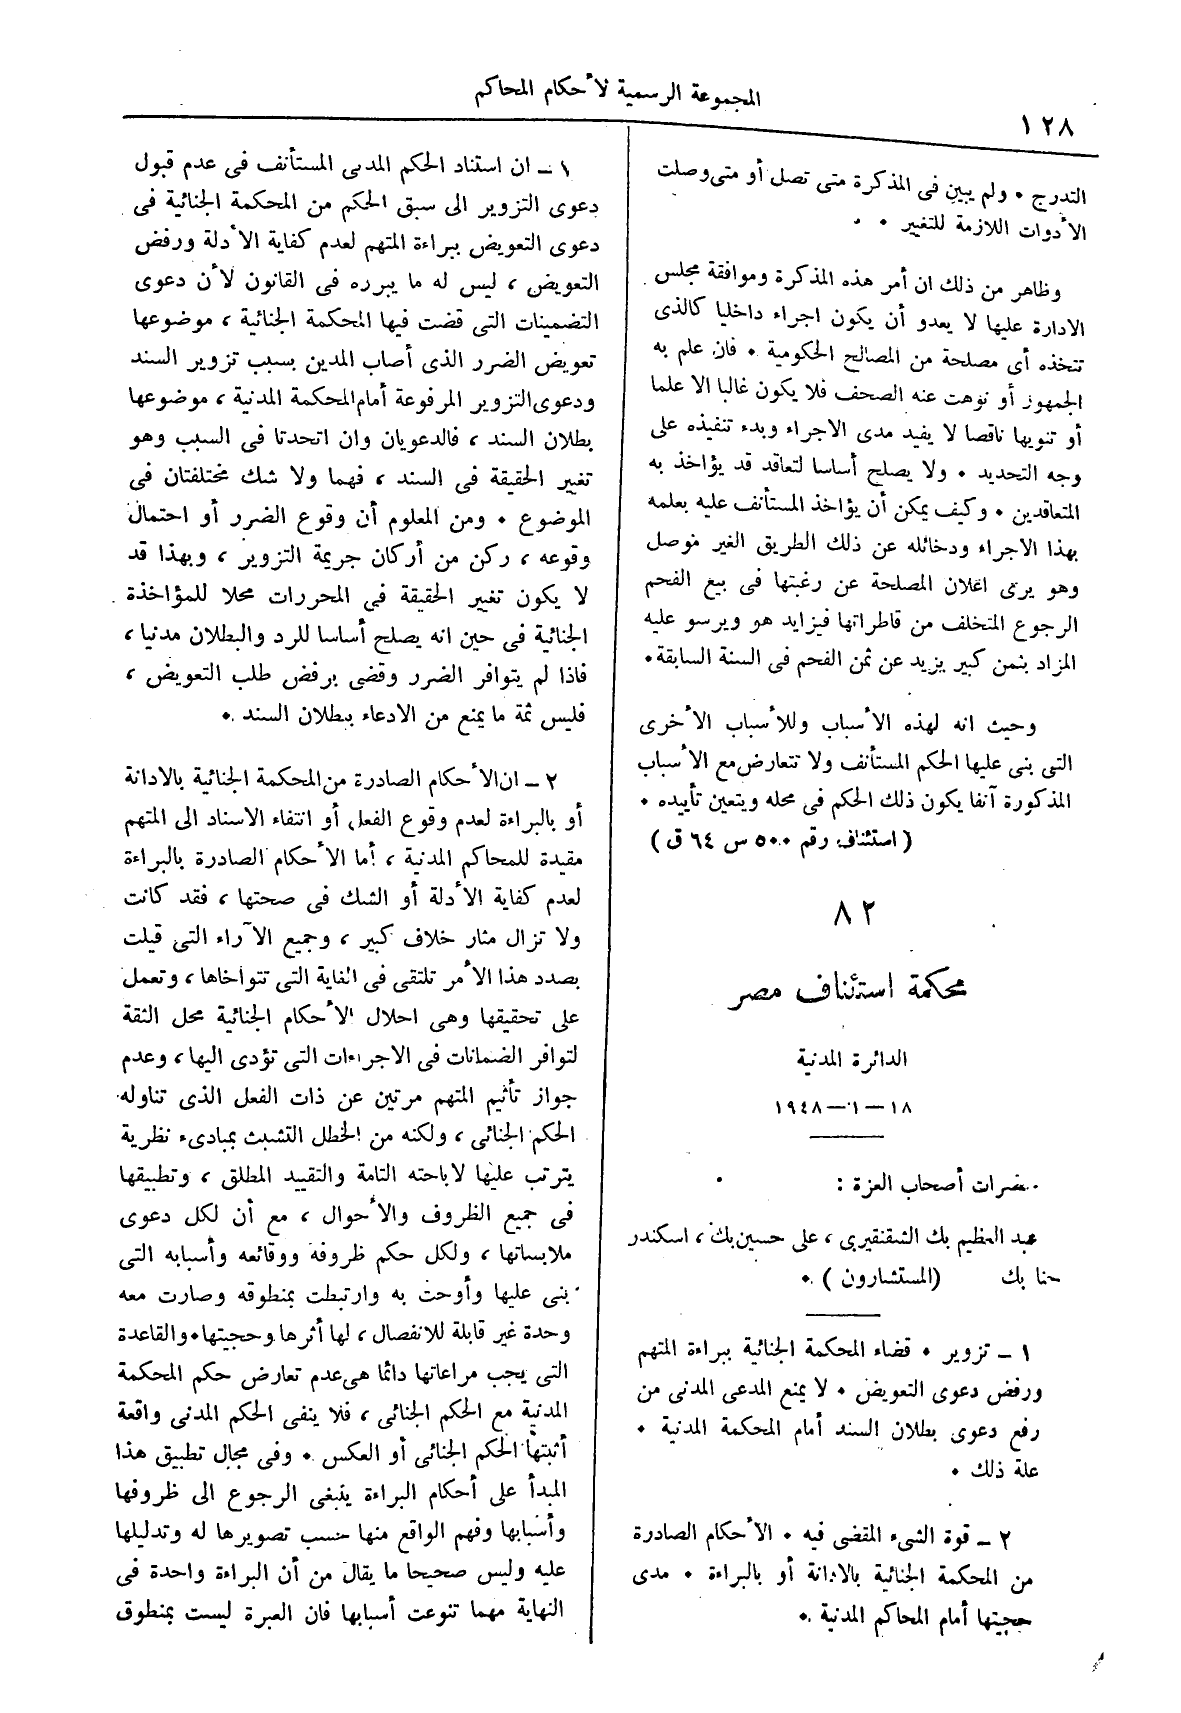 المجموعة الرسمية لأحكام المحاكم
١٢٨
التدرج ٠ ولم يبين فى المذكرة متى تصل أو متى وصلت
الأدوات اللازمة للتغيير ٠
وظاهر من ذلك ان أمر هذه المذكرة وموافقة مجلس
الادارة عليها لا يعدو أن يكون اجراء داخليا كالذى
تتخذه أى مصلحة من المصالح الحكومية ٠ فان علم به
الجمهور أو نوهت عنه الصحف فلا يكون غالبا الا علما
أو تنويها ناقصا لا يفيد مدى الاجراء وبدء تنفيذه على
وجه التحديد ٠ ولا يصلح أساسا لتعاقد قد يؤاخذ به
المتعاقدين ٠ وكيف يمكن أن يؤاخذ المستأنف عليه بعلمه
بهذا الاجراء ودخائله عن ذلك الطريق الغير موصل
وهو يرى اعلان المصلحة عن رغبتها فى بيع الفحم
الرجوع المتخلف من قاطراتها فيزايد هو ويرسو عليه
المزاد بثمن كبير يزيد عن ثمن الفحم فى السنة السابقة ٠
وحيث انه لهذه الأسباب وللأسباب الأخرى
التى بنى عليها الحكم المستأنف ولا تتعارض مع الأسباب
المذكورة آنفا يكون ذلك الحكم فى محله ويتعين تأييده ٠
( استئناف رقم ٥٠٠ س ٦٤ ق )
٨٢
محكمة استئناف مصر
الدائرة المدنية
١٨ – ١ – ١٩٤٨
حضرات أصحاب العزة :
عبد العظيم بك الشقنقيرى ، على حسين بك ، اسكندر
حنا بك (المستشارون ) ٠
١ – تزوير ٠ قضاء المحكمة الجنائية ببراءة المتهم
ورفض دعوى التعويض ٠ لا يمنع المدعى المدنى من
رفع دعوى بطلان السند أمام المحكمة المدنية ٠
علة ذلك ٠
٢ – قوة الشىء المقضى فيه ٠ الأحكام الصادرة
من المحكمة الجنائية بالادانة أو بالبراءة ٠ مدى
حجيتها أمام المحاكم المدنية ٠
١ – ان استناد الحكم المدنى المستأنف فى عدم قبول
دعوى التزوير الى سبق الحكم من المحكمة الجنائية فى
دعوى التعويض ببراءة المتهم لعدم كفاية الأدلة ورفض
التعويض ، ليس له ما يبرره فى القانون لأن دعوى
التضمينات التى قضت فيها المحكمة الجنائية ، موضوعها
تعويض الضرر الذى أصاب المدين بسبب تزوير السند
ودعوى التزوير المرفوعة أمام المحكمة المدنية ، موضوعها
بطلان السند ، فالدعويان وان اتحدتا فى السبب وهو
تغيير الحقيقة فى السند ، فهما ولا شك مختلفتان فى
الموضوع ٠ ومن المعلوم أن وقوع الضرر أو احتمال
وقوعه ، ركن من أركان جريمة التزوير ، وبهذا قد
لا يكون تغيير الحقيقة فى المحررات محلا للمؤاخذة
الجنائية فى حين انه يصلح أساسا للرد والبطلان مدنيا ،
فاذا لم يتوافر الضرر وقضى برفض طلب التعويض ،
فليس ثمة ما يمنع من الادعاء ببطلان السند ٠
٢ – ان الأحكام الصادرة من المحكمة الجنائية بالادانة
أو بالبراءة لعدم وقوع الفعل أو انتفاء الاسناد الى المتهم
مقيدة للمحاكم المدنية ، أما الأحكام الصادرة بالبراءة
لعدم كفاية الأدلة أو الشك فى صحتها ، فقد كانت
ولا تزال مثار خلاف كبير ، وجميع الآراء التى قيلت
بصدد هذا الأمر تلتقى فى الغاية التى تتواخاها ، وتعمل
على تحقيقها وهى احلال الأحكام الجنائية محل الثقة
لتوافر الضمانات فى الاجراءات التى تؤدى اليها ، وعدم
جواز تأثيم المتهم مرتين عن ذات الفعل الذى تناوله
الحكم الجنائى ، ولكنه من الخطل التشبث بمبادىء نظرية
يترتب عليها لاباحته التامة والتقييد المطلق ، وتطبيقها
فى جميع الظروف والأحوال ، مع أن لكل دعوى
ملابساتها ، ولكل حكم ظروفه ووقائعه وأسبابه التى
بنى عليها وأوحت به وارتبطت بمنطوقه وصارت معه
وحدة غير قابلة للانفصال ، لها أثرها وحجيتها ٠ والقاعدة
التى يجب مراعاتها دائما هى عدم تعارض حكم المحكمة
المدنية مع الحكم الجنائى ، فلا ينفى الحكم المدنى واقعة
أثبتها الحكم الجنائى أو العكس ٠ وفى مجال تطبيق هذا
المبدأ على أحكام البراءة ينبغى الرجوع الى ظروفها
وأسبابها وفهم الواقع منها حسب تصويرها له وتدليلها
عليه وليس صحيحا ما يقال من أن البراءة واحدة فى
النهاية مهما تنوعت أسبابها فان العبرة ليست بمنطوق